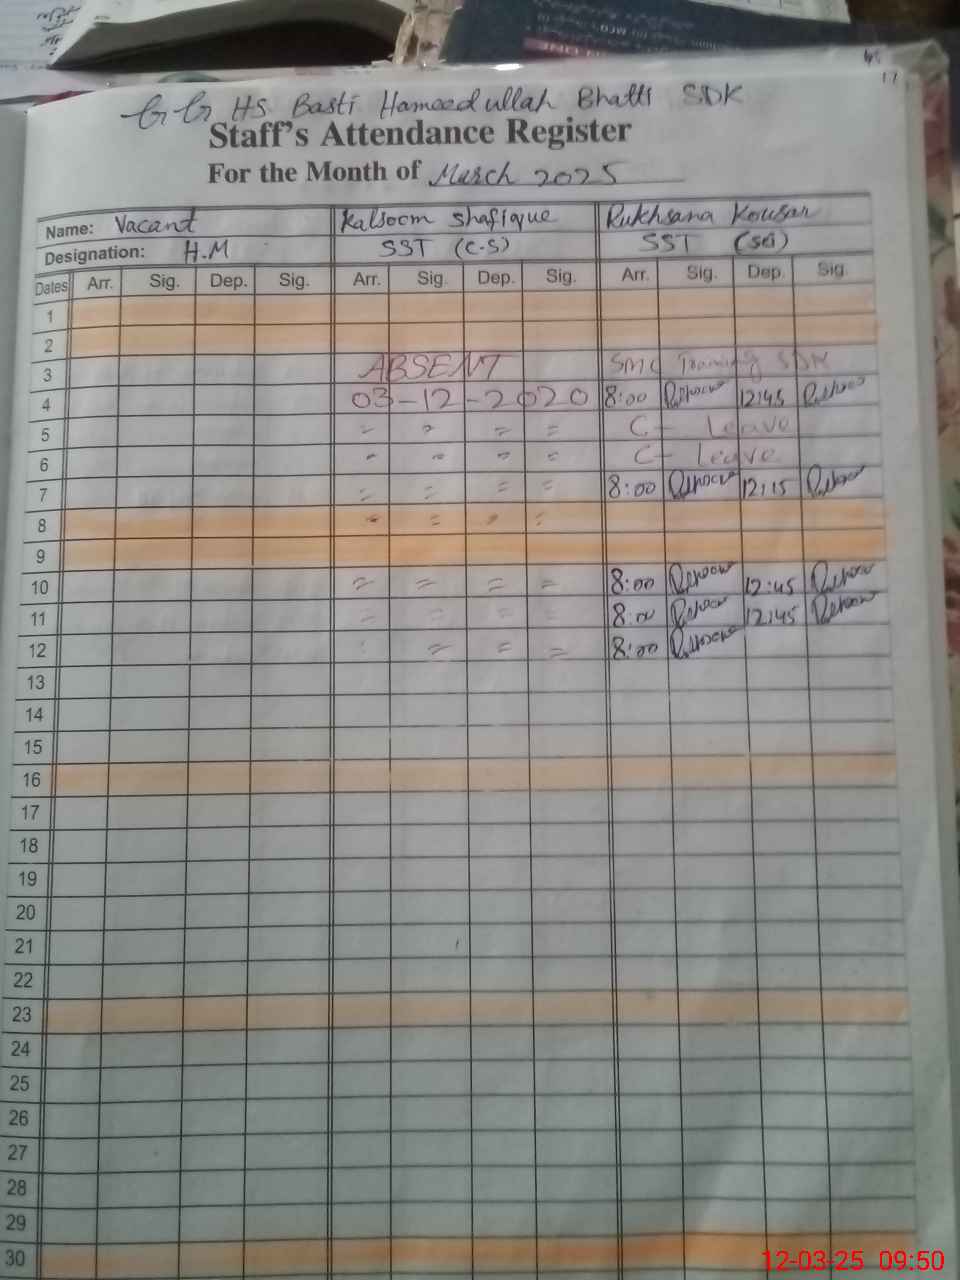 G G HS Basti Hameedullah Bhatti SDK
Staff's Attendance Register
For the Month of March 2025
Name: Vacant Kalsoom Shafique Rukhsana Kousar
Designation: H.M SST (C-S) SST (SG)
Dates Arr. Sig. Dep. Sig. Arr. Sig. Dep. Sig. Arr. Sig. Dep. Sig.
1
2
3 ABSENT SMC Training SDK
4 03-12-2020 8:00 12:45
5 = = = = C- Leave
6 = = = = C- Leave
7 = = = = 8:00 12:15
8 = = = =
9
10 = = = = 8:00 12:45
11 = = = = 8:00 12:45
12 = = = 8:00
13
14
15
16
17
18
19
20
21
22
23
24
25
26
27
28
29
30
12-03-25 09:50